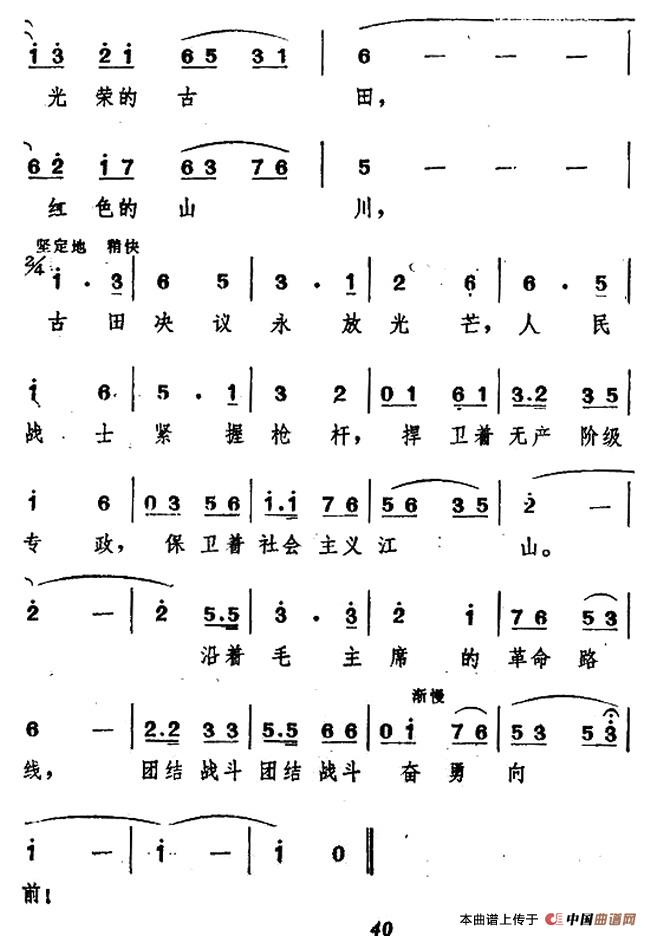 i 3 2 i 6 5 3 1 | 6 — — — |
光荣的古 田，
6 2 i 7 6 3 7 6 | 5 — — — |
红色的山 川，
坚定地 稍快
2/4 i . 3 | 6 5 | 3 . 1 | 2 6 | 6 . 5 |
古 田 决 议 永 放 光 芒，人 民
i 6 | 5 . 1 | 3 2 | 0 1 6 1 | 3.2 3 5 |
战 士 紧 握 枪 杆， 捍 卫着 无产 阶级
i 6 | 0 3 5 6 | i.i 7 6 | 5 6 3 5 | 2 — |
专 政， 保 卫着 社会 主义 江 山。
2 — | 2 5.5 | 3 . 3 | 2 i | 7 6 5 3 |
沿着 毛 主 席 的 革命 路
渐慢
6 — | 2.2 3 3 | 5.5 6 6 | 0 i 7 6 | 5 3 5 3 |
线， 团结 战斗 团结 战斗 奋 勇 向
i — | i — | i 0 ‖
前！
40
本曲谱上传于 中国曲谱网